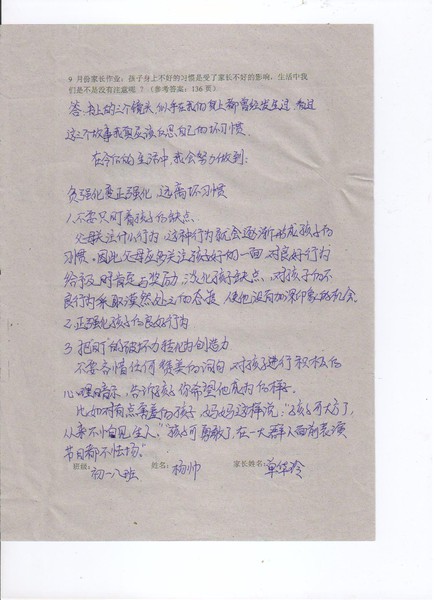 9 月份家长作业：孩子身上不好的习惯是受了家长不好的影响，生活中我
们是不是没有注意呢 ？（参考答案：136 页）
答 书上的三个镜头,似乎在我们身上都曾经发生过 看过
这三个故事我真是该反思自己的坏习惯.
在今后的生活中,我会努力做到:
负强化变正强化 远离坏习惯
1.不要只盯着孩子的缺点.
父母关注什么行为,这种行为就会逐渐形成孩子的
习惯.因此父母应多关注孩子好的一面 对良好行为
给予及时肯定与奖励,淡化孩子缺点.对孩子的不
良行为采取漠然处之的态度 使他没有加深印象的机会.
2.正强化孩子的良好行为
3.把盯的破坏力转化为创造力
不要吝惜任何赞美的词句 对孩子进行积极的
心理暗示,告诉孩子你希望他成为的样子.
比如对有点害羞的孩子 妈妈这样说:"孩子可大方了,
从来不怕见生人.""孩子可勇敢了,在一大群人面前表演
节目都不怯场."
班级：初一八班 姓名：杨帅 家长姓名：